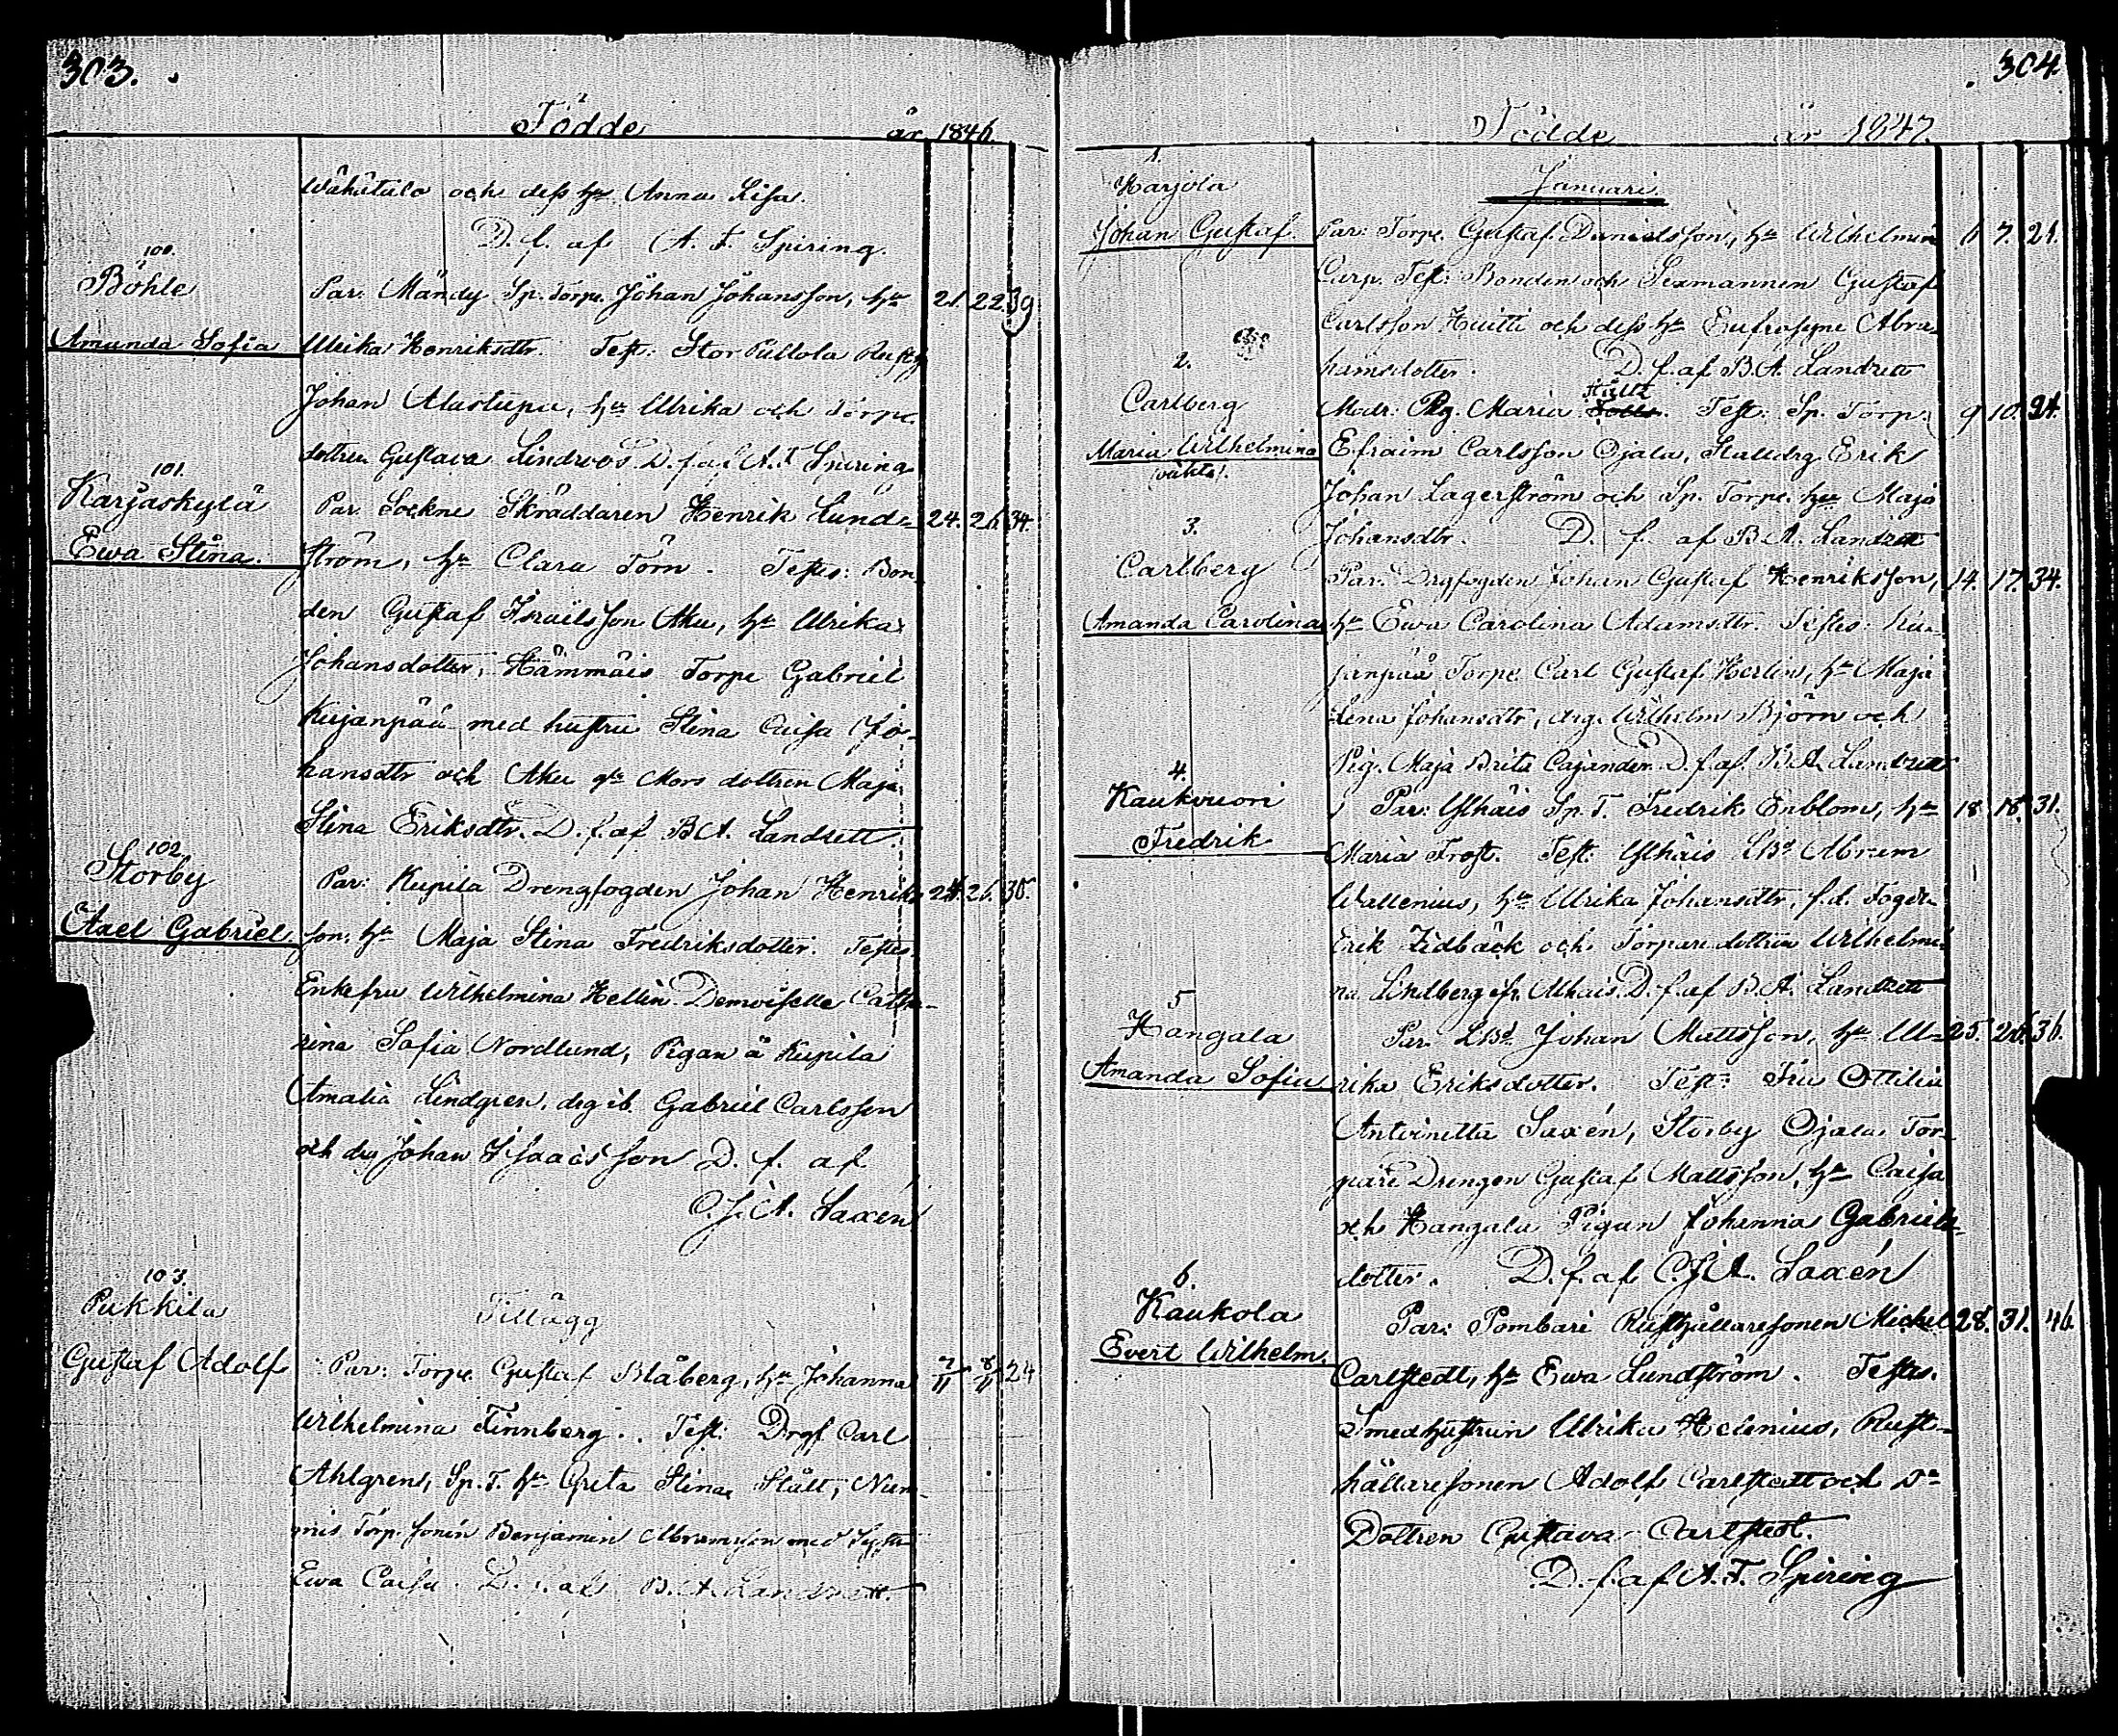 303.
Födde år 1846.
och dess hu Anna Lisa.
D. f. af A. F. Spiring.
100.
Böhle
Par: Mändy Sp. Torpe. Johan Johansson, hu 21. 22. 39
Amanda Sofia
Ulrika Henriksdtr. Test: Stor Pullola
Johan Alastupa, hu Ulrika och Torpe.
dottren Gustava Lindroos D. f. af A. F. Spiring
101.
Karjaskylä
Par. Sockne Skräddaren Henrik Lund= 24. 26. 34.
Ewa Stina.
ström, hu Clara Törn. Testes: Bon
den Gustaf Israelsson Aku, hu Ulrika
Johansdotter, Hämmäis Torpe Gabriel
Kujanpää med hustru Stina Caisa Jo=
hansdtr och Aku Mors dottren Maja
Stina Eriksdtr. D. f. af B. A. Landzett.
102.
Storby
Par: Kupila Drengfogden Johan Henriks 24. 26. 30.
Axel Gabriel.
son, hu Maja Stina Fredriksdotter. Testes.
Enkefru Wilhelmina Hellin Demoiselle Catha=
rina Sofia Nordlund, Pigan ä Kupila
Amalia Lindgren, drg ib. Gabriel Carlsson
och drg Johan Isaacsson D. f. af
C. J. A. Saxén
103.
Pukkila
Tillägg
Gustaf Adolf
Par: Torpe Gustaf Blåberg, hu Johanna 7/11 8/11 24
Wilhelmina Finnberg. Test: Drgf Carl
Ahlgren, Sp. T. hu Greta Stina Stått, Num=
mis Torp. sonen Benjamin Abramsson med
Ewa Caisa. D. f. af B. A. Landzett.
304
Födde år 1847.
1.
Harjola
Januari
Johan Gustaf.
Par: Torpe. Gustaf Danielsson, hu Wilhelmin 6 7. 21.
Carp. Test: Bonden och Sexmannen Gustaf
Carlsson Huitti och dess hu Eufrosyne Abra
2.
hamsdotter. D. f. af B. A. Landzett
Hållt
Carlberg
Modr: Pig. Maria. Test: Sp. Torp. 9 10. 24.
Maria Wilhelmina
Efraim Carlsson Ojala, Stalldrg Erik
(oäkta).
Johan Lagerström och Sp. Torpe. hu Maja
3.
Johansdtr. D. f. af B. A. Landzett
Carlberg
Par. Drgfogden Johan Gustaf Henriksson, 14. 17. 34.
Amanda Carolina
hu Ewa Carolina Adamsdtr. Testes: Ku=
janpää Torpe. Carl Gustaf Herlin, hu Maja
Lena Johansdtr, drg. Wilhelm Björn och
Pig. Maja Brita Cajander D. f. af B. A. Landzett
4.
Kaukvuori
Par: Ylhäis Sp. T. Fredrik Enblom, hu 18 18. 31.
Fredrik
Maria Frost. Test: Ylhäis Abram
Wallenius, hu Ulrika Johansdtr, f. d. Fogden
Erik Zidbäck och Torpare dottren Wilhelmi=
na Lindberg D. f. af B. A. Landzett
5
Hangala
Par. Johan Mattsson, hu Ul= 25. 26. 36.
Amanda Sofia
rika Eriksdotter. Test: Fru Ottilia
Antoinetta Saxén, Storby Ojala, Tor=
pare Drengen Gustaf Mattsson, hu Caisa
och Hangala Pigan Johanna Gabriels=
dotter. D. f. af C. J. A. Saxén
6.
Kaukola
Par: Pombari Rusthållaresonen Michel 28. 31. 46.
Evert Wilhelm.
Carlstedt, hu Ewa Lundström. Testes.
Smedhustrun Ulrika Helenius, Rust=
hållaresonen Adolf Carlstedt och Do
Dottren Gustava Carlstedt.
D. f. af A. F. Spiring